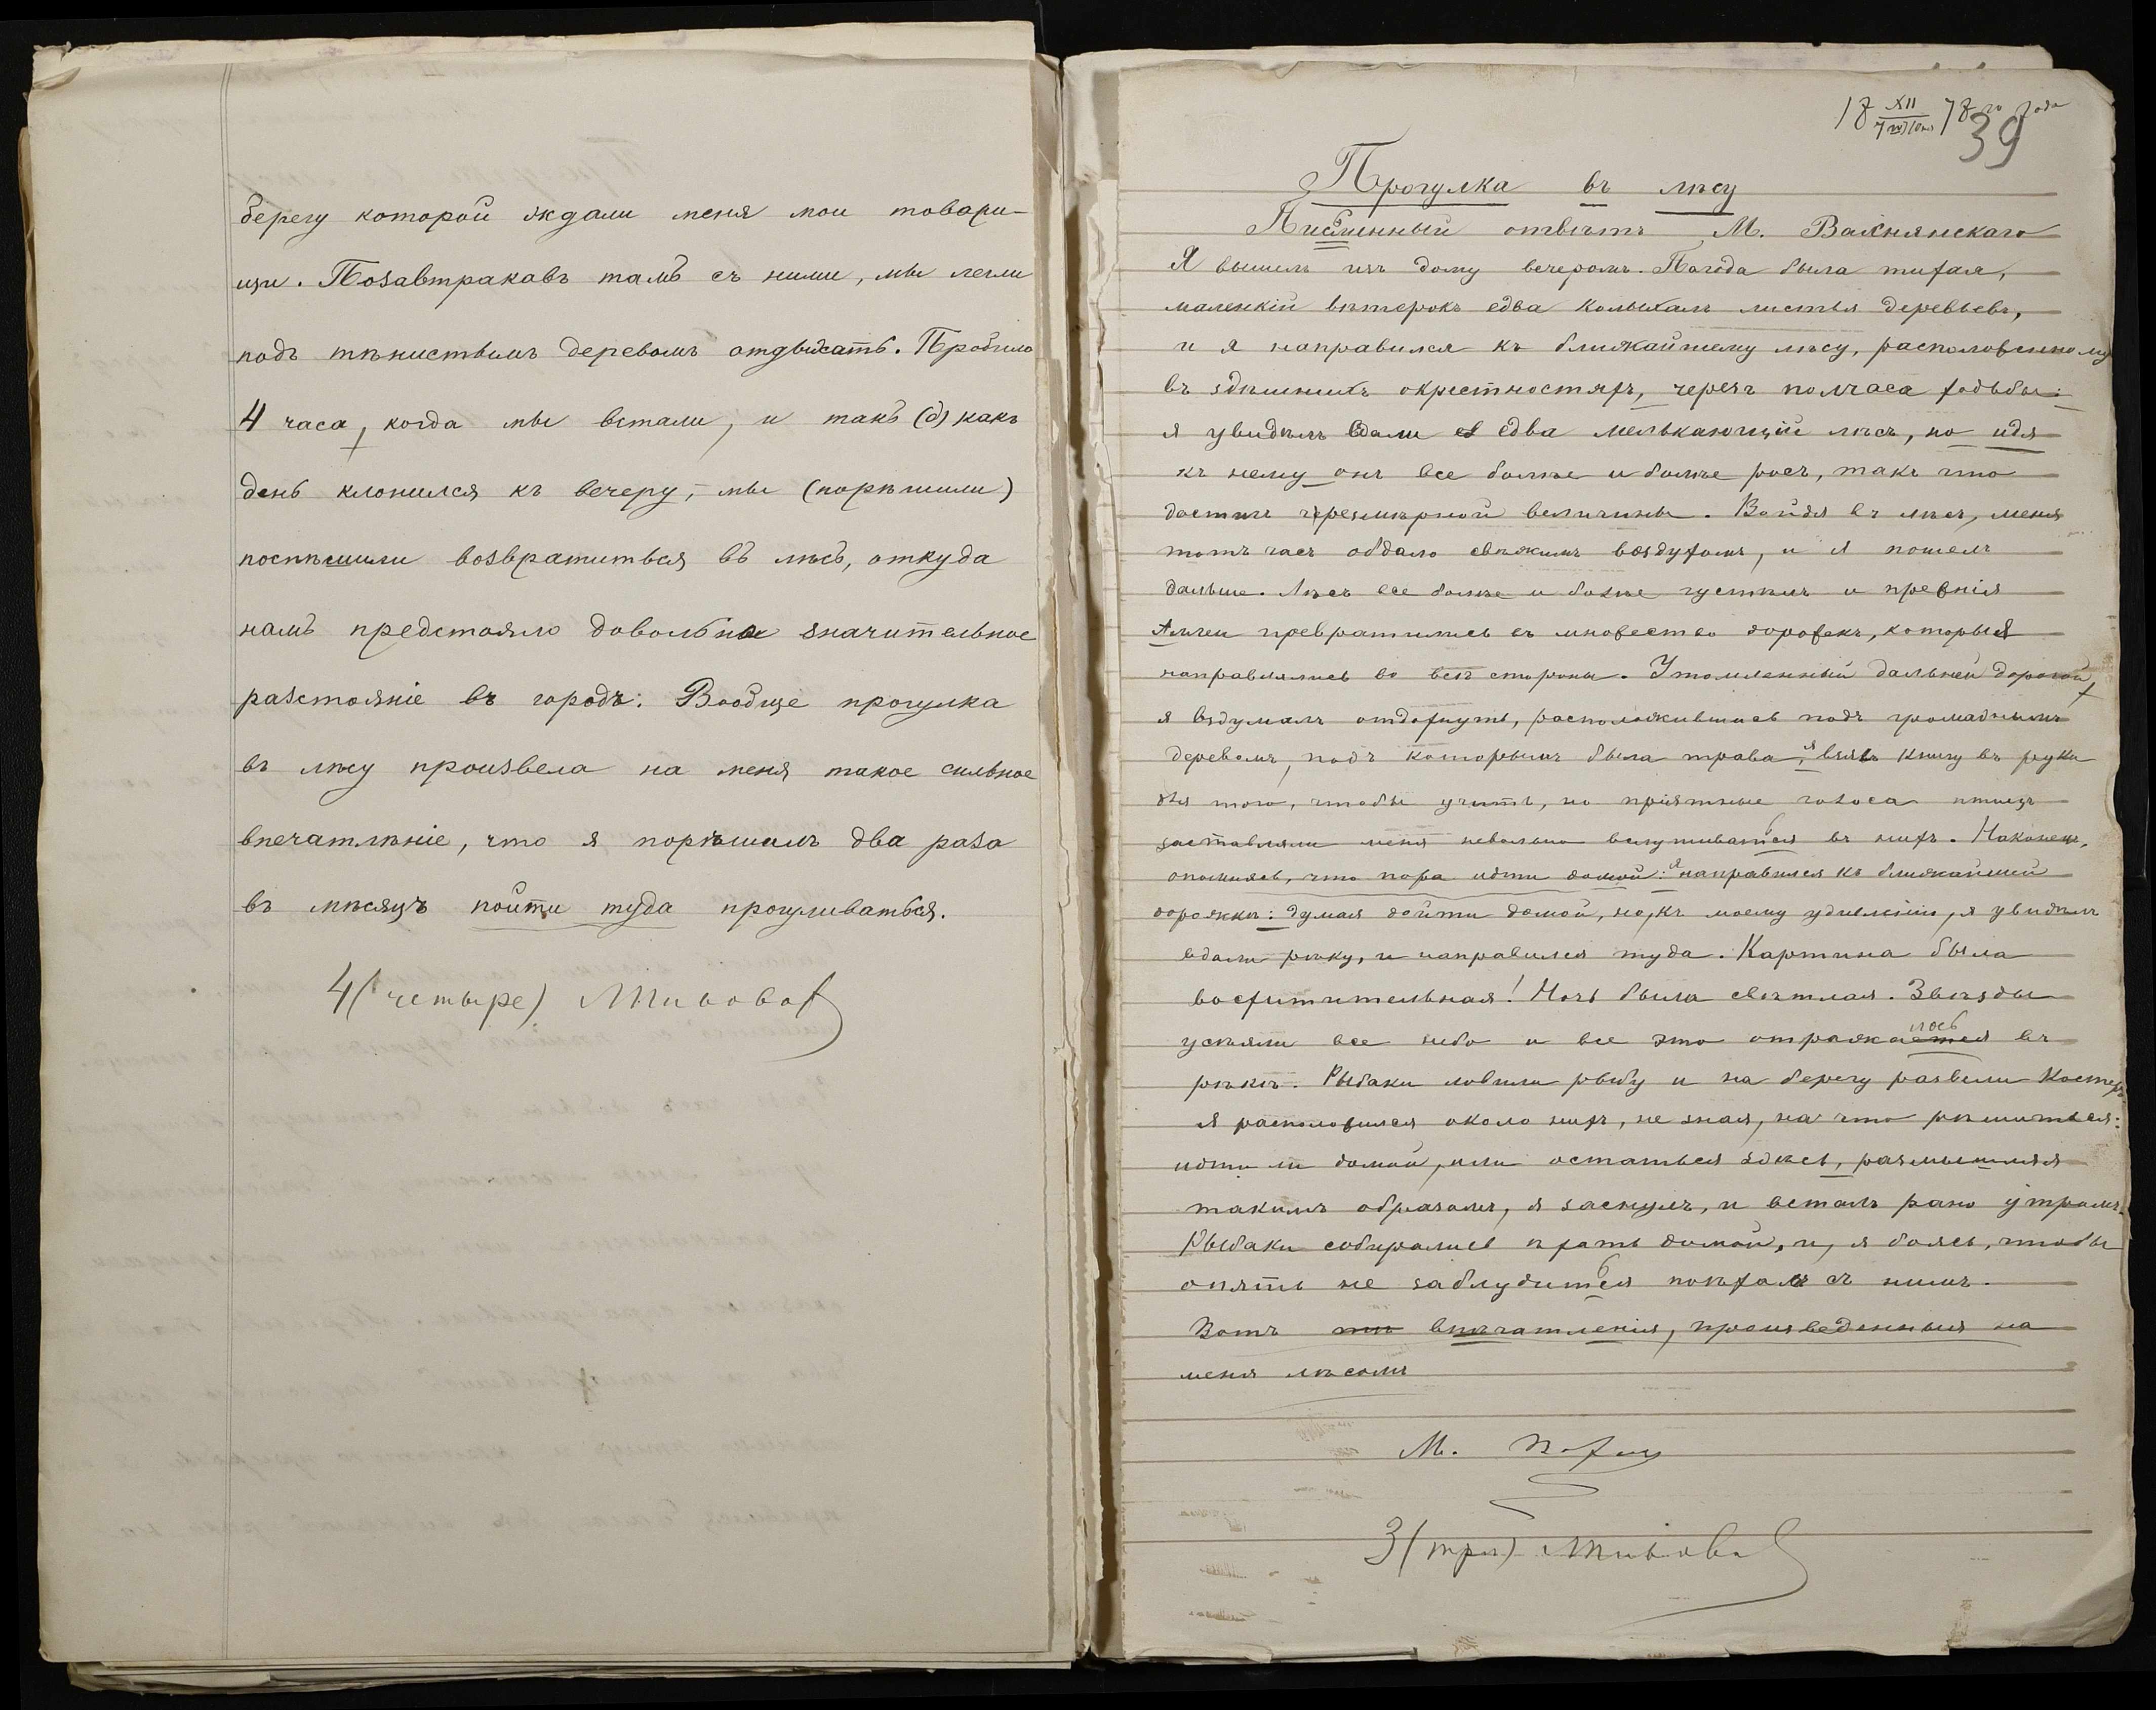 берегу которой ждали меня мои товари-
щи. Позавтракавъ тамъ съ ними, мы легли
подъ тѣнистымъ деревомъ отдыхать. Пробило
4 часа, когда мы встали, и такъ (д) какъ
день клонился къ вечеру, мы (порѣшили)
поспѣшили возвратиться въ лѣсъ, откуда
намъ предстояло довольно значительное
разстояніе въ городъ: Вообще прогулка
въ лѣсу произвела на меня такое сильное
впечатлѣніе, что я порѣшилъ два раза
въ мѣсяцъ пойти туда прогуливаться.
4 (четыре)
18 XII 78 го года
39
Прогулка въ лѣсу
Писменный отвѣтъ М. Вахнянскаго
Я вышелъ изъ дому вечеромъ. Погода была тихая,
маленкій вѣтерокъ едва колыхалъ листья деревьевъ,
и я направился къ ближайшему лѣсу, расположенному
въ здѣшнихъ окрестностяхъ, черезъ полчаса ходьбы:
я увидѣлъ вдали едва мелькающій лѣсъ, но идя
къ нему онъ все болѣе и болѣе росъ, такъ что
достигъ чрезмѣрной величины. Войдя въ лѣсъ, меня
тотъ часъ обдало свѣжимъ воздухомъ, и я пошелъ
дальше. Лѣсъ все болѣе и болѣе густѣлъ и прежнія
Аллеи превратились въ множество дорожекъ, которыя
направлялись во всѣ стороны. Утомленный дальней дорогой,
я вздумалъ отдохнуть, расположившись подъ громаднымъ
деревомъ, подъ которымъ была трава, я взялъ книгу въ руки
для того, чтобы учить, но пріятные голоса птицъ
заставляли меня невольно вслушиваться въ нихъ. Наконецъ,
опомнясь, что пора идти домой: я направился къ ближайшей
дорожки: думая дойти домой, но, къ моему удивленію, я увидѣлъ
вдали рѣку, и направился туда. Картина была
восхитительная! Ночь была свѣтлая. Звѣзды
усѣяли все небо и все это отражается лось въ
рѣкѣ. Рыбаки ловили рыбу и на берегу развели костеръ
я расположился около нихъ, не зная, на что рѣшиться:
идти ли домой, или остаться здѣсь, размышляя
такимъ образомъ, я заснулъ, и всталъ рано утромъ.
Рыбаки собирались ѣхать домой, и, я боясь, чтобы
опять не заблудиться поѣхалъ съ нимъ.
Вотъ впѣчатленія, произведенныя на
меня лѣсомъ
М.
3 (три)